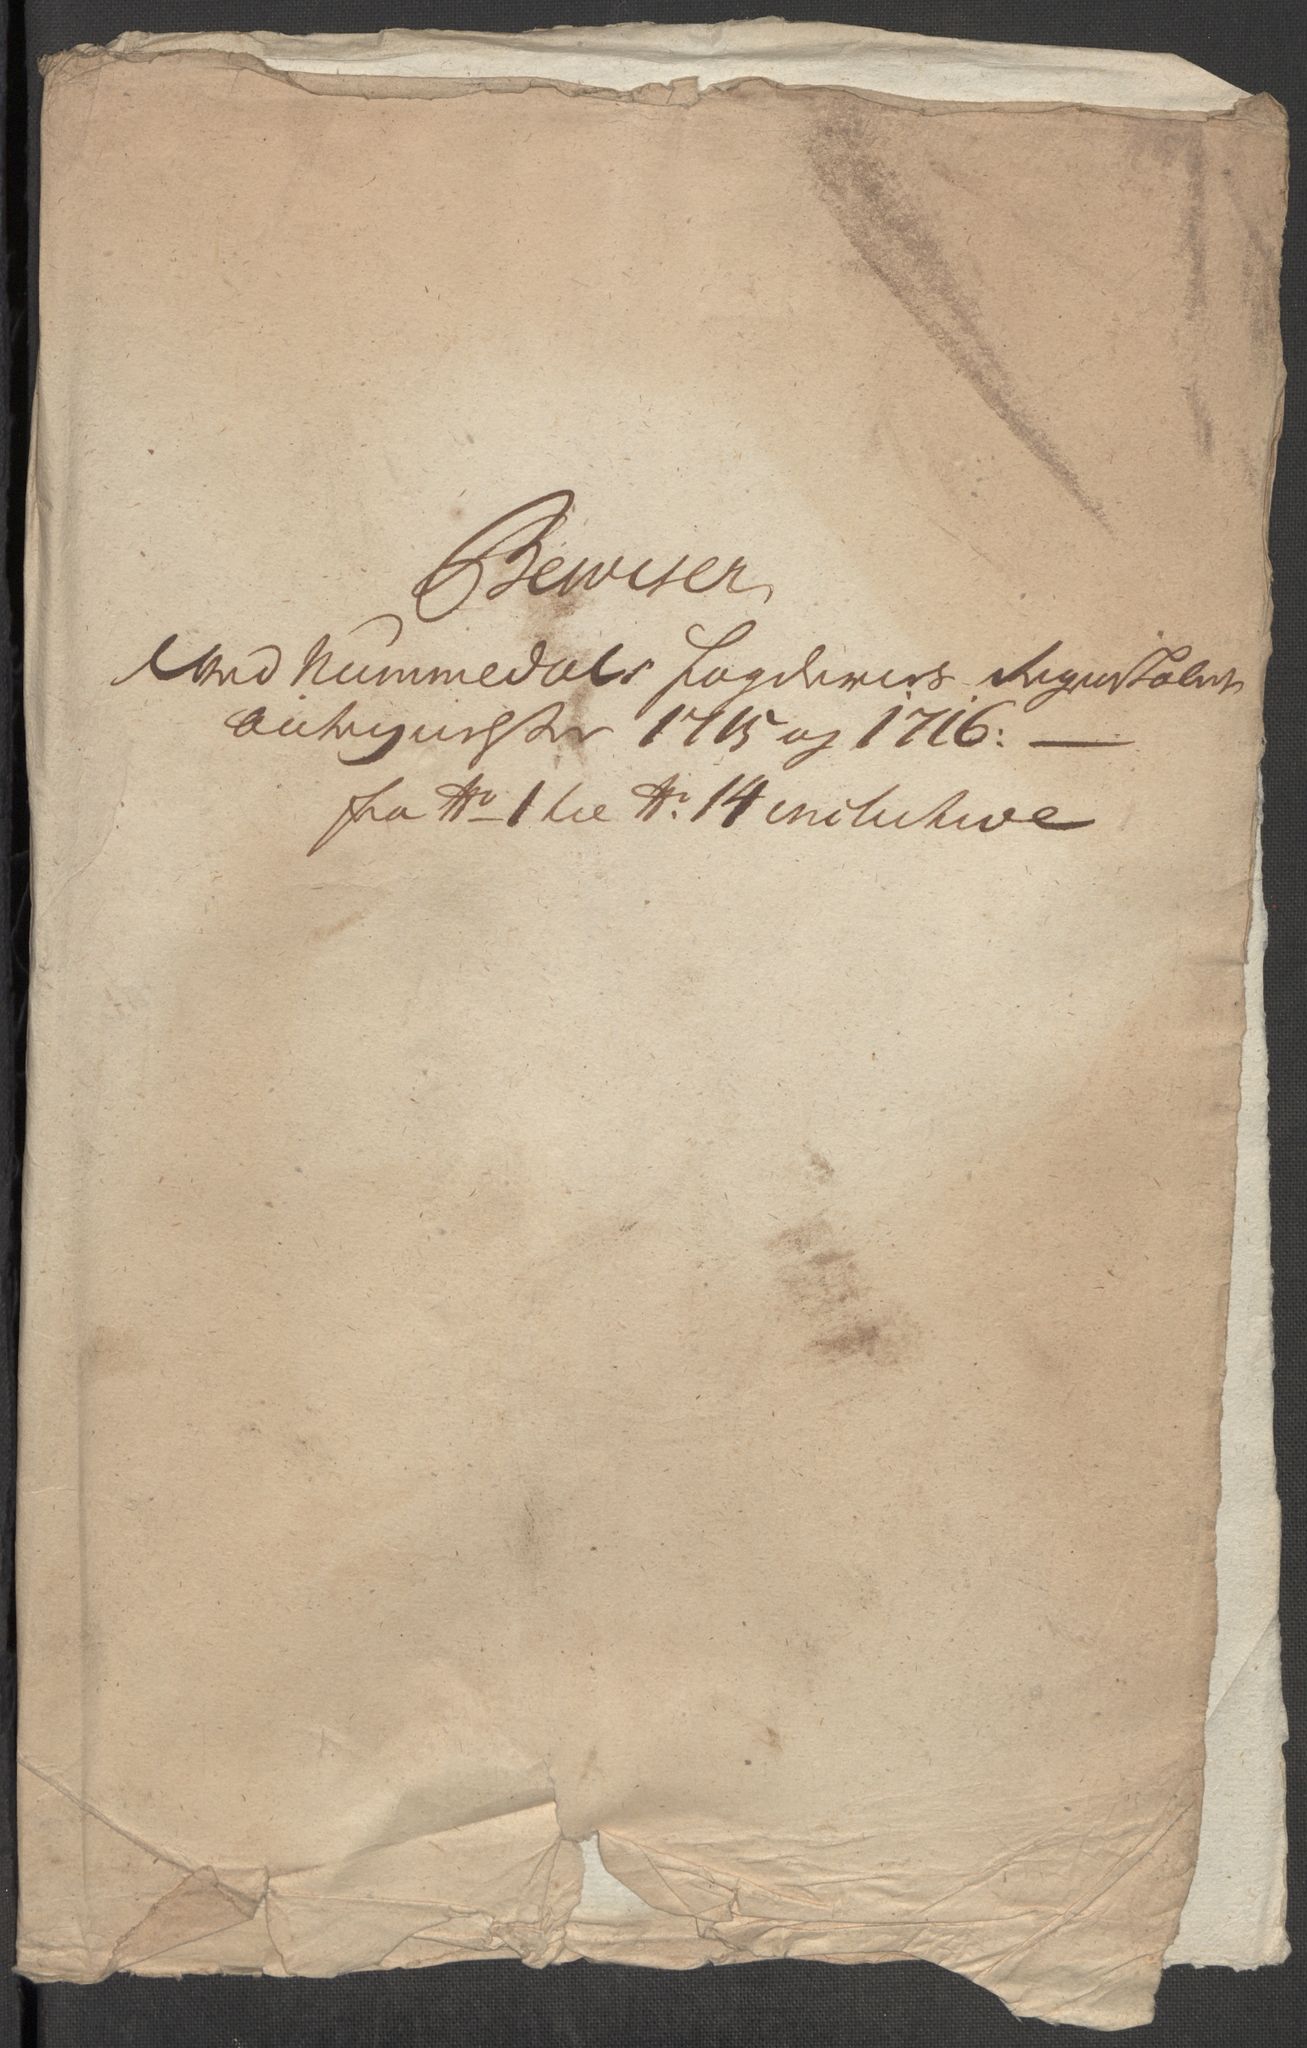 Bewiser
Ved Nummedals fogderies Regenskaber
1715 og 1716: —
fra No 1 til No 14 inclusive